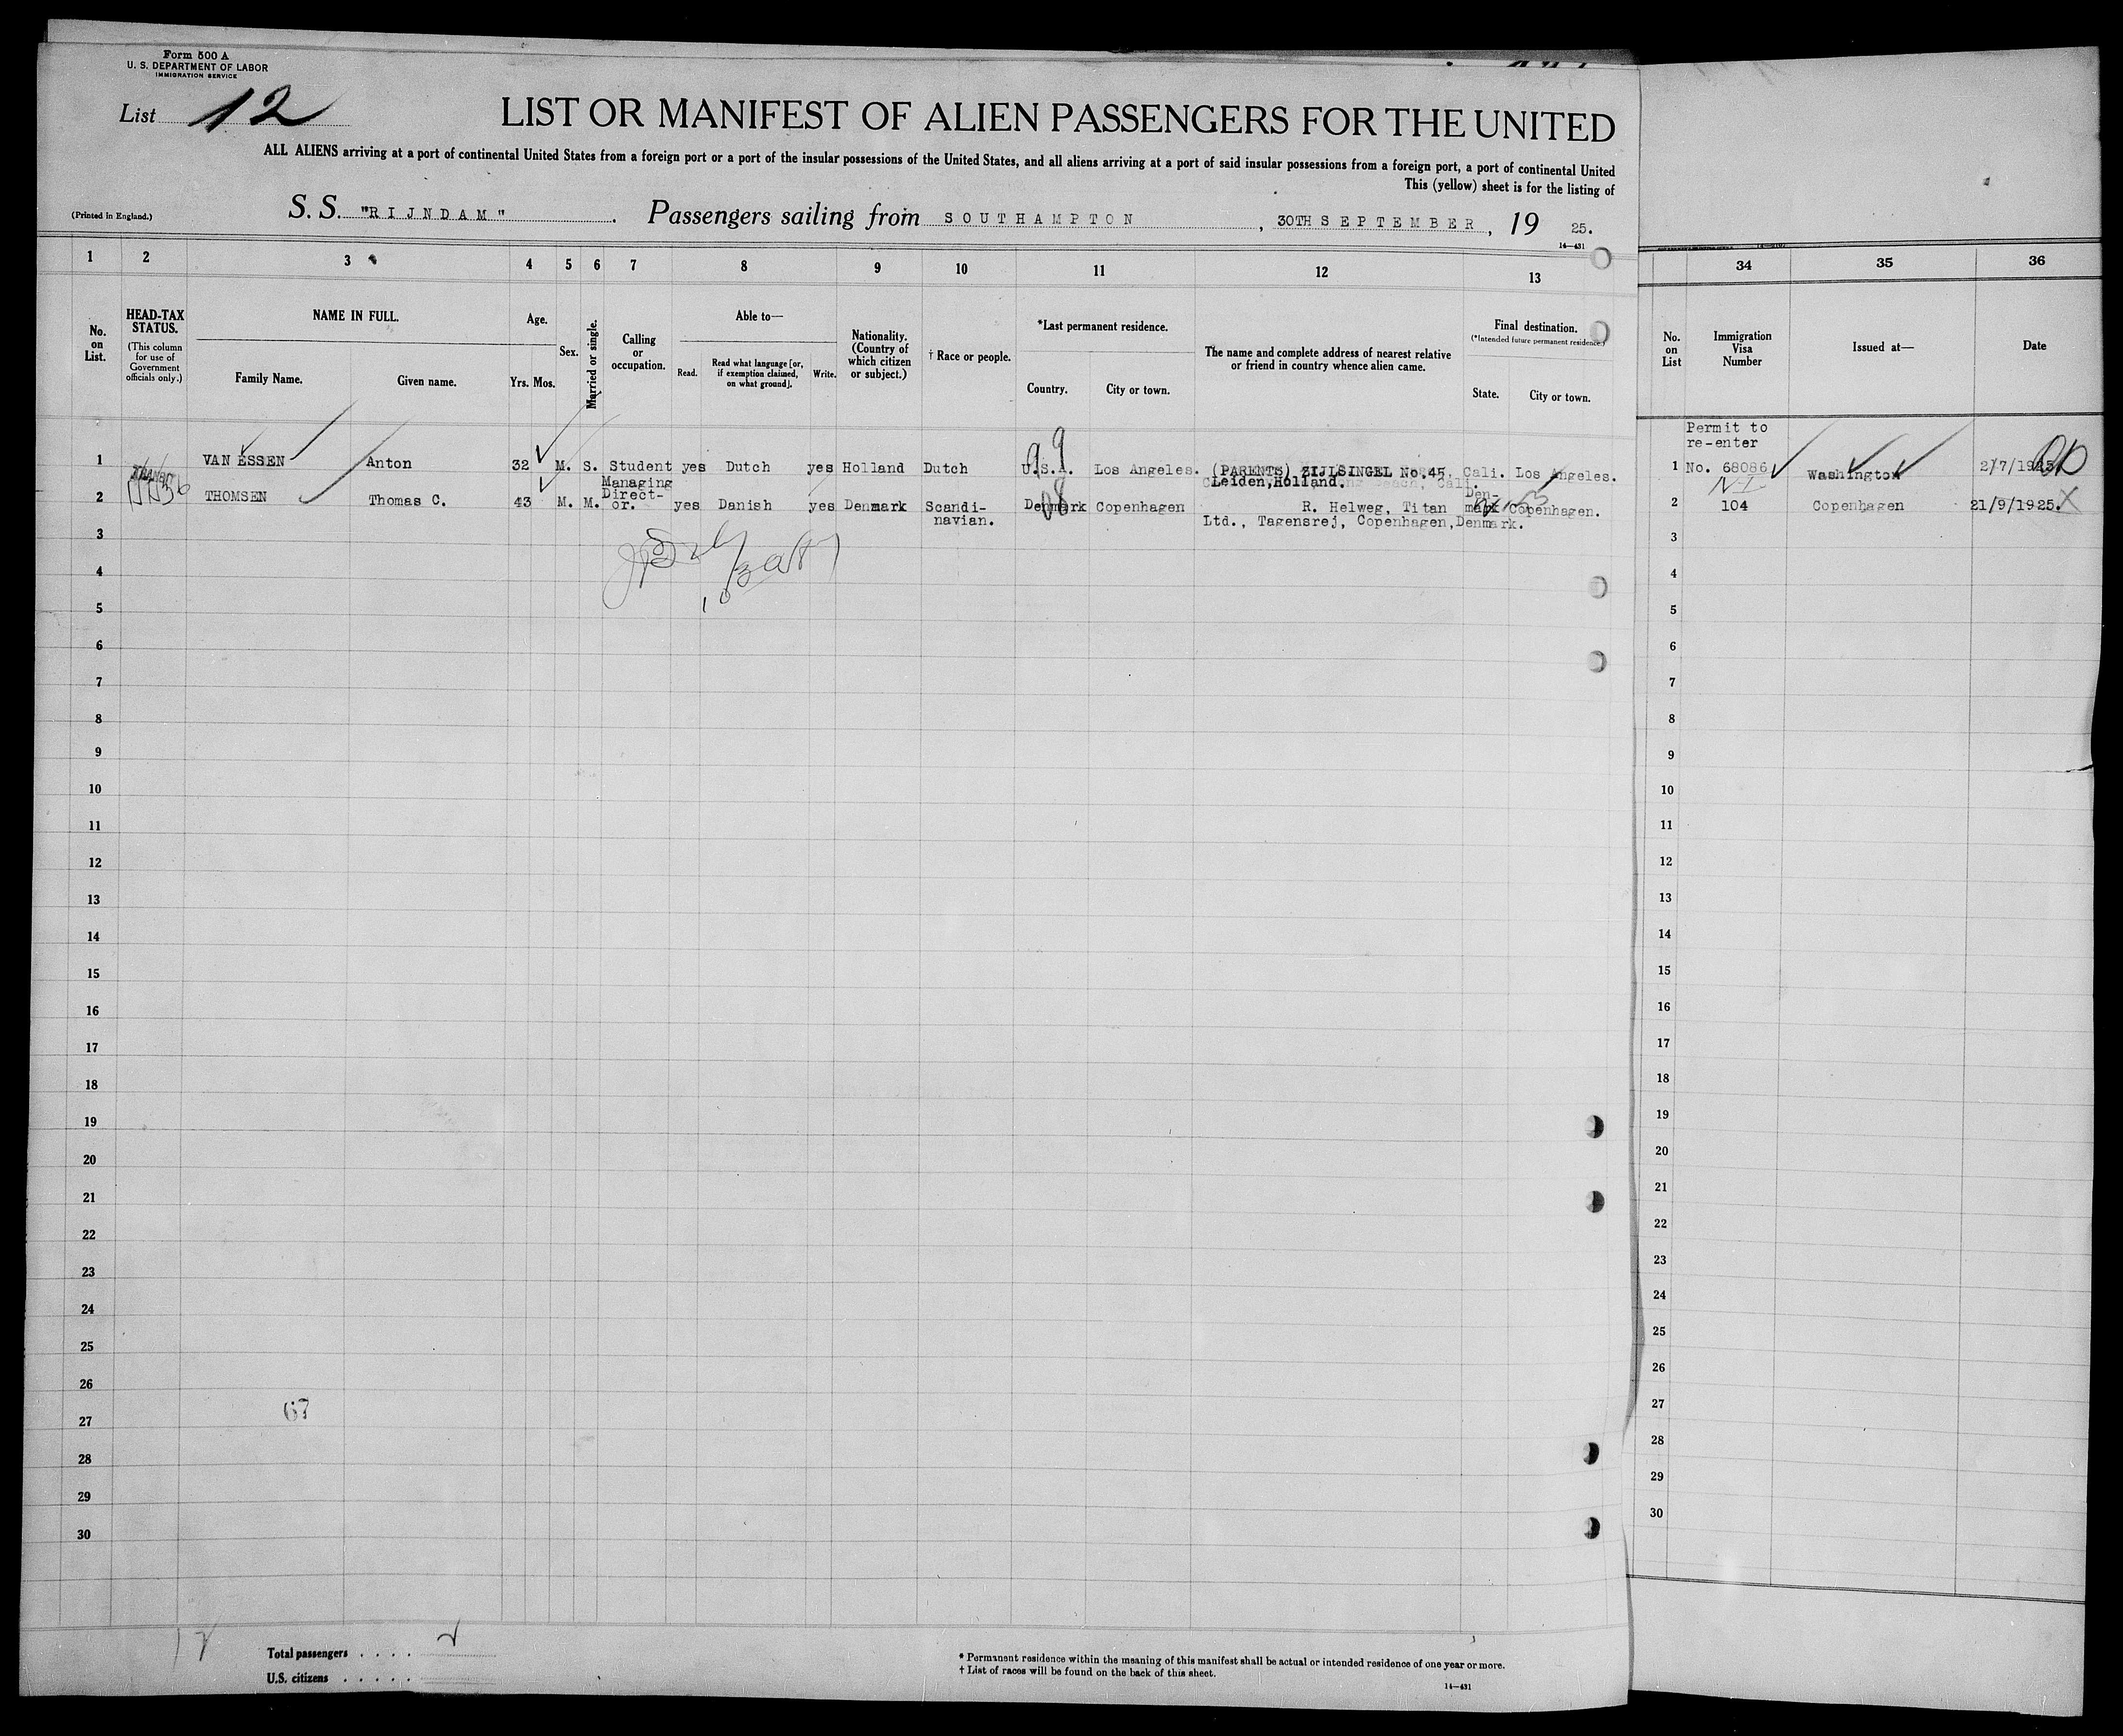 Form 500 A
U. S. DEPARTMENT OF LABOR
IMMIGRATION SERVICE
List 12
LIST OR MANIFEST OF ALIEN PASSENGERS FOR THE UNITED
ALL ALIENS arriving at a port of continental United States from a foreign port or a port of the insular possessions of the United States, and all aliens arriving at a port of said insular possessions from a foreign port, a port of continental United
This (yellow) sheet is for the listing of
(Printed in England.)
S. S. "RIJNDAM" . Passengers sailing from SOUTHAMPTON , 30TH SEPTEMBER , 19 25.
14—431
1 2 3 4 5 6 7 8 9 10 11 12 13
34 35 36
No. on List.
HEAD-TAX STATUS.
(This column for use of Government officials only.)
NAME IN FULL.
Family Name. Given name.
Age.
Yrs. Mos.
Sex.
Married or single.
Calling or occupation.
Able to—
Read. Read what language [or, if exemption claimed, on what ground]. Write.
Nationality. (Country of which citizen or subject.)
† Race or people.
*Last permanent residence.
Country. City or town.
The name and complete address of nearest relative or friend in country whence alien came.
Final destination.
(*Intended future permanent residence.)
State. City or town.
No. on List
Immigration Visa Number
Issued at—
Date
1 VAN ESSEN Anton 32 M. S. Student yes Dutch yes Holland Dutch U.S.A. Los Angeles. (PARENTS) ZIJLSINGEL No.45, Cali. Los Angeles.
Leiden, Holland.
99
1 Permit to re-enter No. 68086 Washington 2/7/1925
2 THOMSEN Thomas C. 43 M. M. Managing Direct-or. yes Danish yes Denmark Scandi-navian. Denmark Copenhagen R. Helweg, Titan Den-mark Copenhagen.
Ltd., Tagensrej, Copenhagen, Denmark.
08
2 104 Copenhagen 21/9/1925.
3
4
5
6
7
8
9
10
11
12
13
14
15
16
17
18
19
20
21
22
23
24
25
26
27
28
29
30
3
4
5
6
7
8
9
10
11
12
13
14
15
16
17
18
19
20
21
22
23
24
25
26
27
28
29
30
67
Total passengers . . . .
U.S. citizens . . . . .
* Permanent residence within the meaning of this manifest shall be actual or intended residence of one year or more.
† List of races will be found on the back of this sheet.
14—431